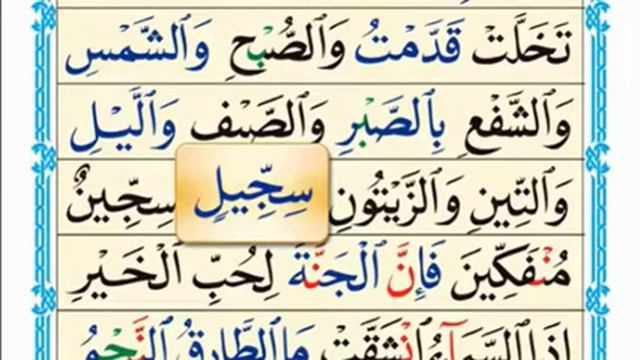 تَخَلَّتْ قَدَّمْتُ وَالصُّبْحِ وَالشَّمْسِ
وَالشَّفْعِ بِالصَّبْرِ وَالصَّيْفِ وَالَّيْلِ
وَالتِّينِ وَالزَّيْتُونِ سِجِّيلٍ سِجِّينٌ
مُنْفَكِّينَ فَإِنَّ الْجَنَّةَ لِحُبِّ الْخَيْرِ
إِذَا السَّمَآءُ انْشَقَّتْ مَا الطَّارِقُ النَّجْمُ